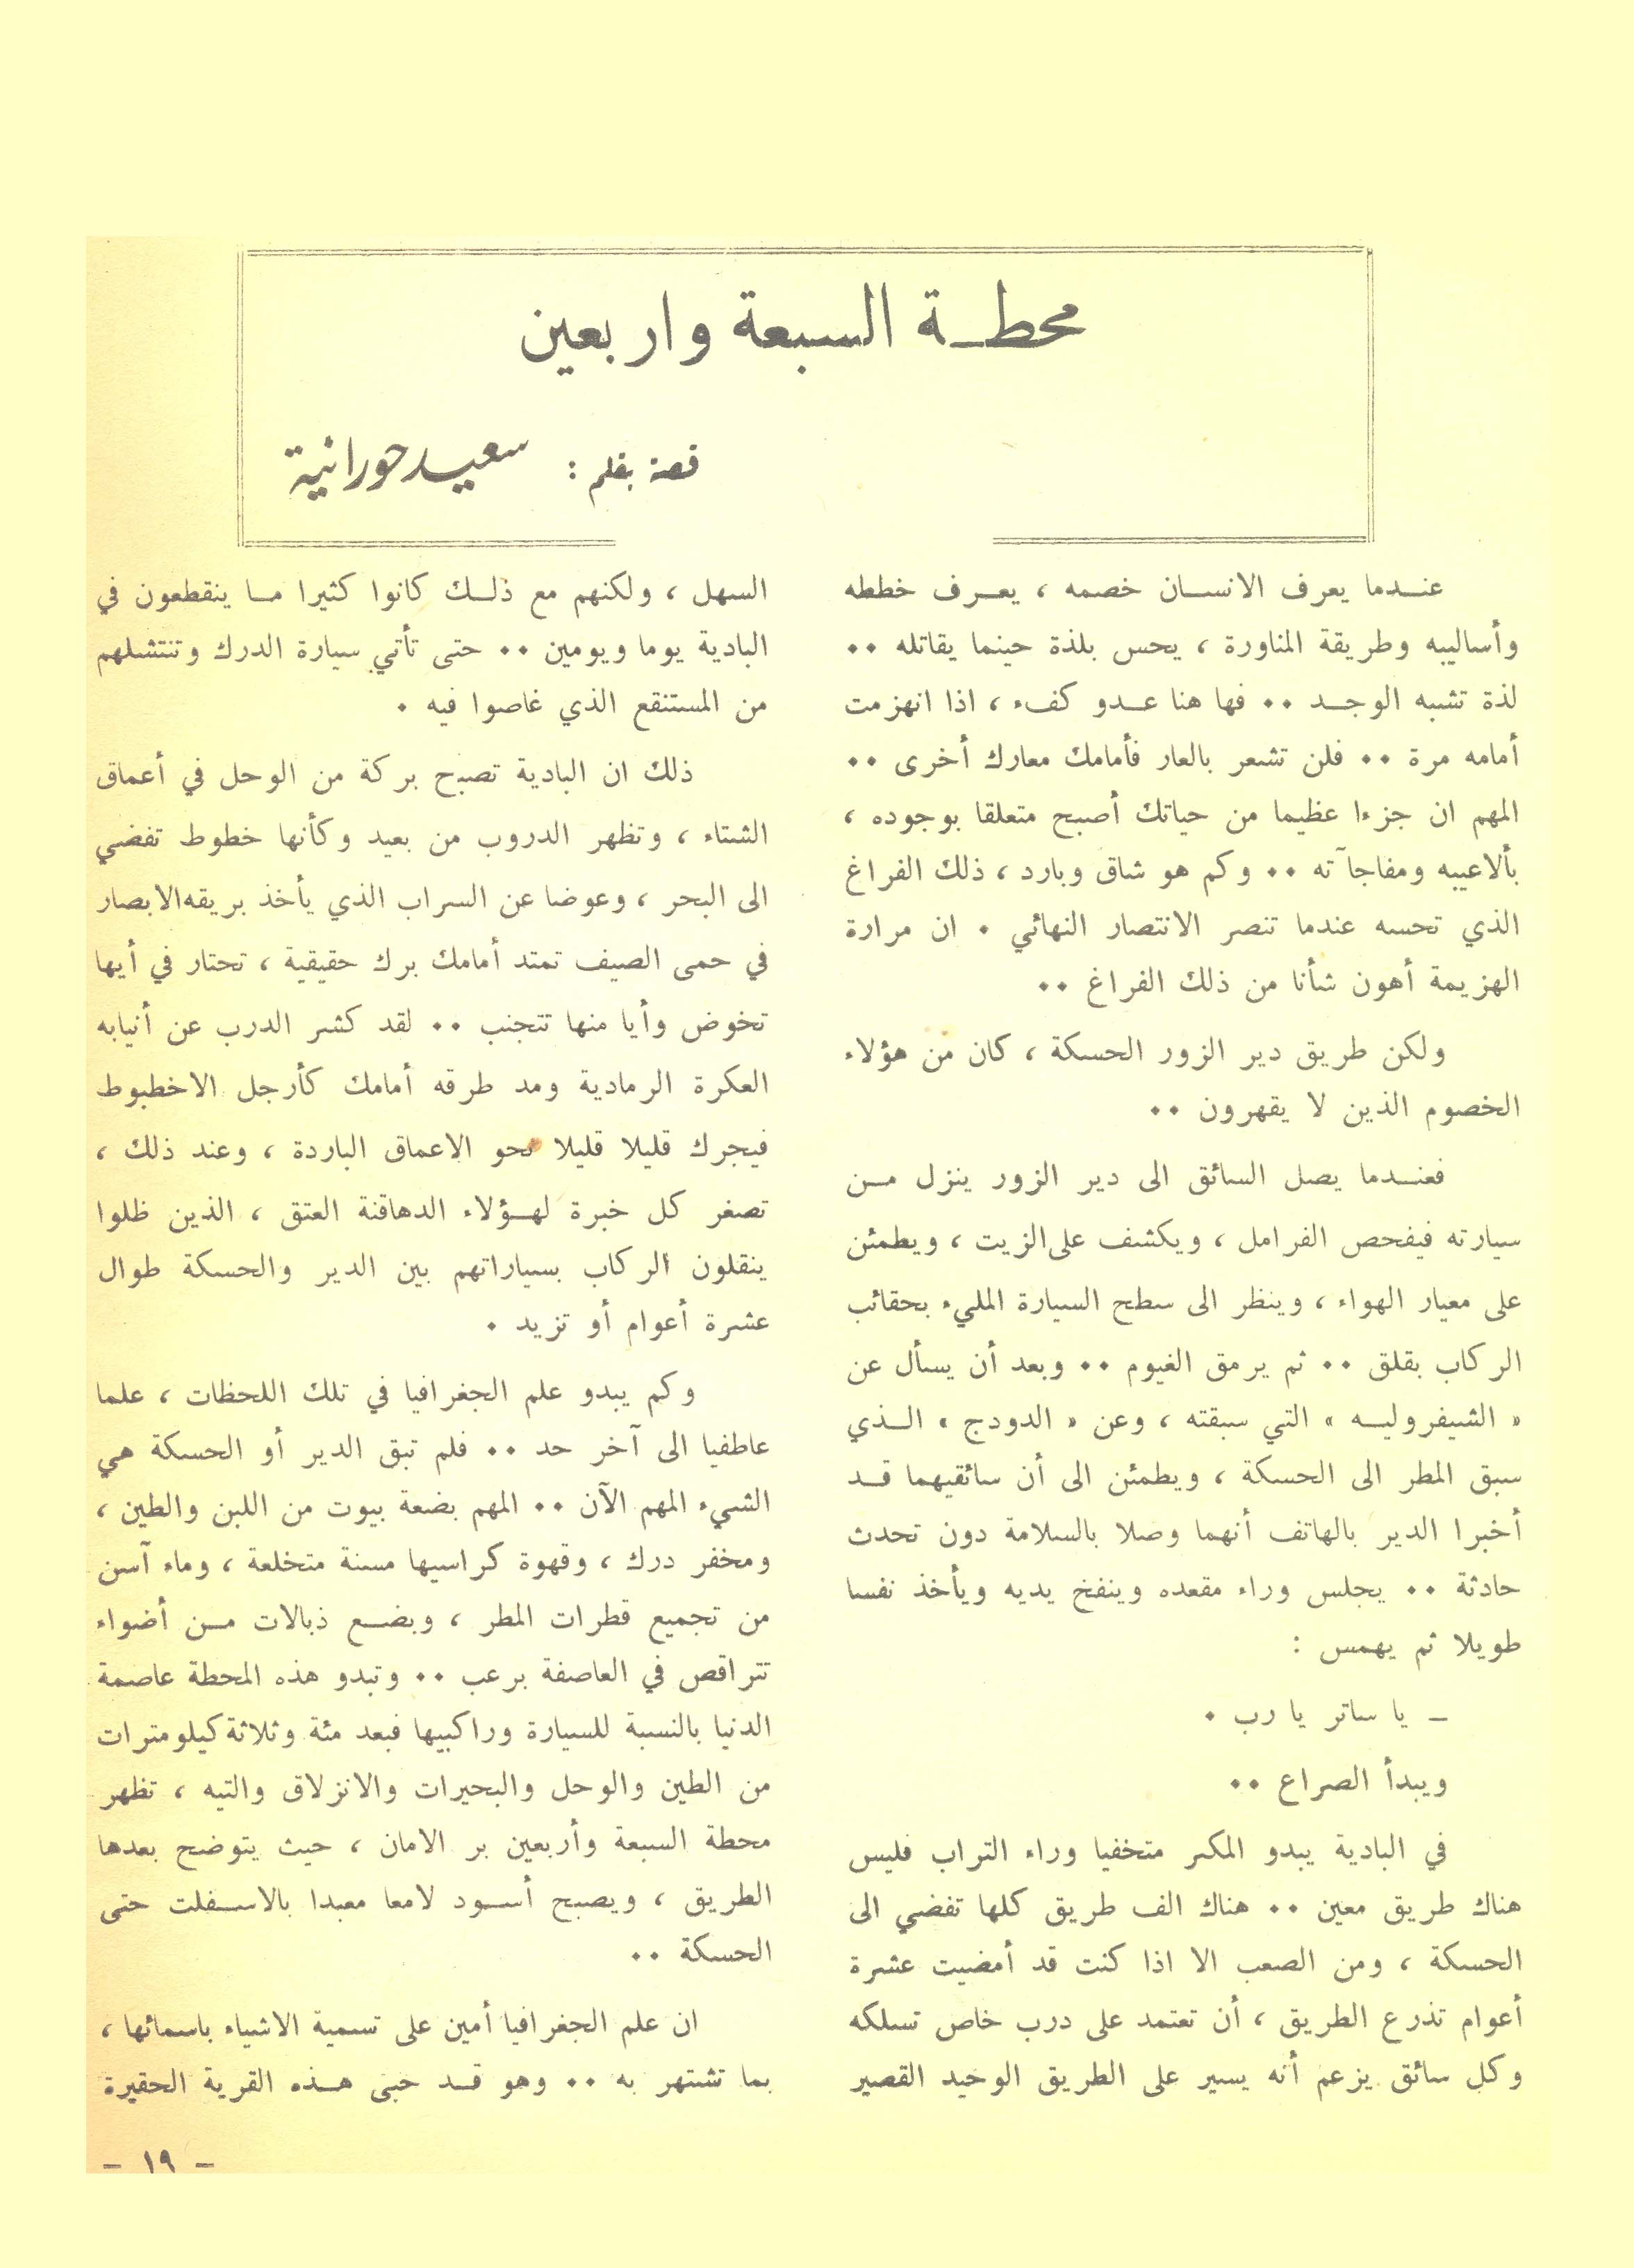 محطـة السبعة واربعين
قصة بقلم : سعيد حورانية
عنـدما يعرف الانسـان خصمه ، يعـرف خططه
وأساليبه وطريقة المناورة ، يحس بلذة حينما يقاتله ٠٠
لذة تشبه الوجـد ٠٠ فها هنا عـدو كفء ، اذا انهزمت
أمامه مرة ٠٠ فلن تشعر بالعار فأمامك معارك أخرى ٠٠
المهم ان جزءا عظيما من حياتك أصبح متعلقا بوجوده ،
بألاعيبه ومفاجآته ٠٠ وكم هو شاق وبارد ، ذلك الفراغ
الذي تحسه عندما تنصر الانتصار النهائي ٠ ان مرارة
الهزيمة أهون شأنا من ذلك الفراغ ٠٠
ولكن طريق دير الزور الحسكة ، كان من هؤلاء
الخصوم الذين لا يقهرون ٠٠
فعنـدما يصل السائق الى دير الزور ينزل مـن
سيارته فيفحص الفرامل ، ويكشف على الزيت ، ويطمئن
على معيار الهواء ، وينظر الى سطح السيارة المليء بحقائب
الركاب بقلق ٠٠ ثم يرمق الغيوم ٠٠ وبعد أن يسأل عن
« الشيفروليـه » التي سبقته ، وعن « الدودج » الـذي
سبق المطر الى الحسكة ، ويطمئن الى أن سائقيهما قـد
أخبرا الدير بالهاتف أنهما وصلا بالسلامة دون تحدث
حادثة ٠٠ يجلس وراء مقعده وينفخ يديه ويأخذ نفسا
طويلا ثم يهمس :
ـ يا ساتر يا رب ٠
ويبدأ الصراع ٠٠
في البادية يبدو المكر متخفيا وراء التراب فليس
هناك طريق معين ٠٠ هناك الف طريق كلها تفضي الى
الحسكة ، ومن الصعب الا اذا كنت قد أمضيت عشرة
أعوام تذرع الطريق ، أن تعتمد على درب خاص تسلكه
وكل سائق يزعم أنه يسير على الطريق الوحيد القصير
السهل ، ولكنهم مع ذلـك كانوا كثيرا مـا ينقطعون في
البادية يوما ويومين ٠٠ حتى تأتي سيارة الدرك وتنتشلهم
من المستنقع الذي غاصوا فيه ٠
ذلك ان البادية تصبح بركة من الوحل في أعماق
الشتاء ، وتظهر الدروب من بعيد وكأنها خطوط تفضي
الى البحر ، وعوضا عن السراب الذي يأخذ بريقه الابصار
في حمى الصيف تمتد أمامك برك حقيقية ، تحتار في أيها
تخوض وأيا منها تتجنب ٠٠ لقد كشر الدرب عن أنيابه
العكرة الرمادية ومد طرقه أمامك كأرجل الاخطبوط
فيجرك قليلا قليلا نحو الاعماق الباردة ، وعند ذلك ،
تصغر كل خبرة لهـؤلاء الدهاقنة العتق ، الذين ظلوا
ينقلون الركاب بسياراتهم بين الدير والحسكة طوال
عشرة أعوام أو تزيد ٠
وكم يبدو علم الجغرافيا في تلك اللحظات ، علما
عاطفيا الى آخر حد ٠٠ فلم تبق الدير أو الحسكة هي
الشيء المهم الآن ٠٠ المهم بضعة بيوت من اللبن والطين ،
ومخفر درك ، وقهوة كراسيها مسنة متخلعة ، وماء آسن
من تجميع قطرات المطر ، وبضـع ذبالات مـن أضواء
تتراقص في العاصفة برعب ٠٠ وتبدو هذه المحطة عاصمة
الدنيا بالنسبة للسيارة وراكبيها فبعد مئة وثلاثة كيلومترات
من الطين والوحل والبحيرات والانزلاق والتيه ، تظهر
محطة السبعة وأربعين بر الامان ، حيث يتوضح بعدها
الطريق ، ويصبح أسـود لامعا معبدا بالاسـفلت حتى
الحسكة ٠٠
ان علم الجغرافيا أمين على تسمية الاشياء باسمائها ،
بما تشتهر به ٠٠ وهو قـد حبى هـذه القرية الحقيرة
ـ ١٩ ـ